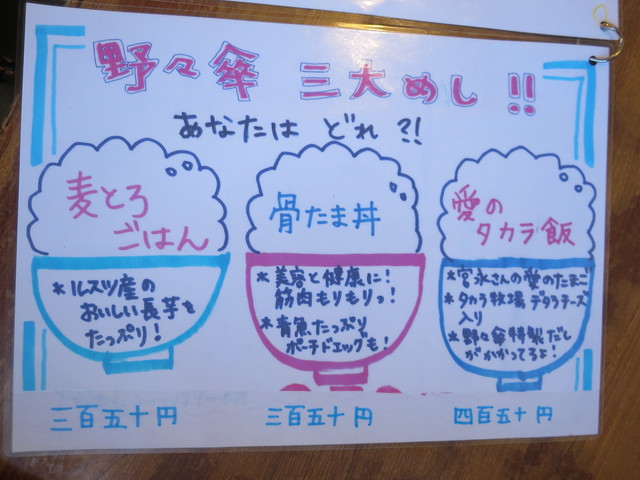 野々傘 三大めし!!
あなたは どれ?!
麦とろ
ごはん
*ルスツ産の
おいしい長芋を
たっぷり!
三百五十円
骨たま丼
*美容と健康に!
筋肉もりもりっ!
*青魚たっぷり
ポーチドエッグも!
三百五十円
愛の
タカラ飯
*宮永さんの愛のたまご
*タカラ牧場 デタラチーズ
入り
*野々傘特製だし
がかかってるよ!
四百五十円